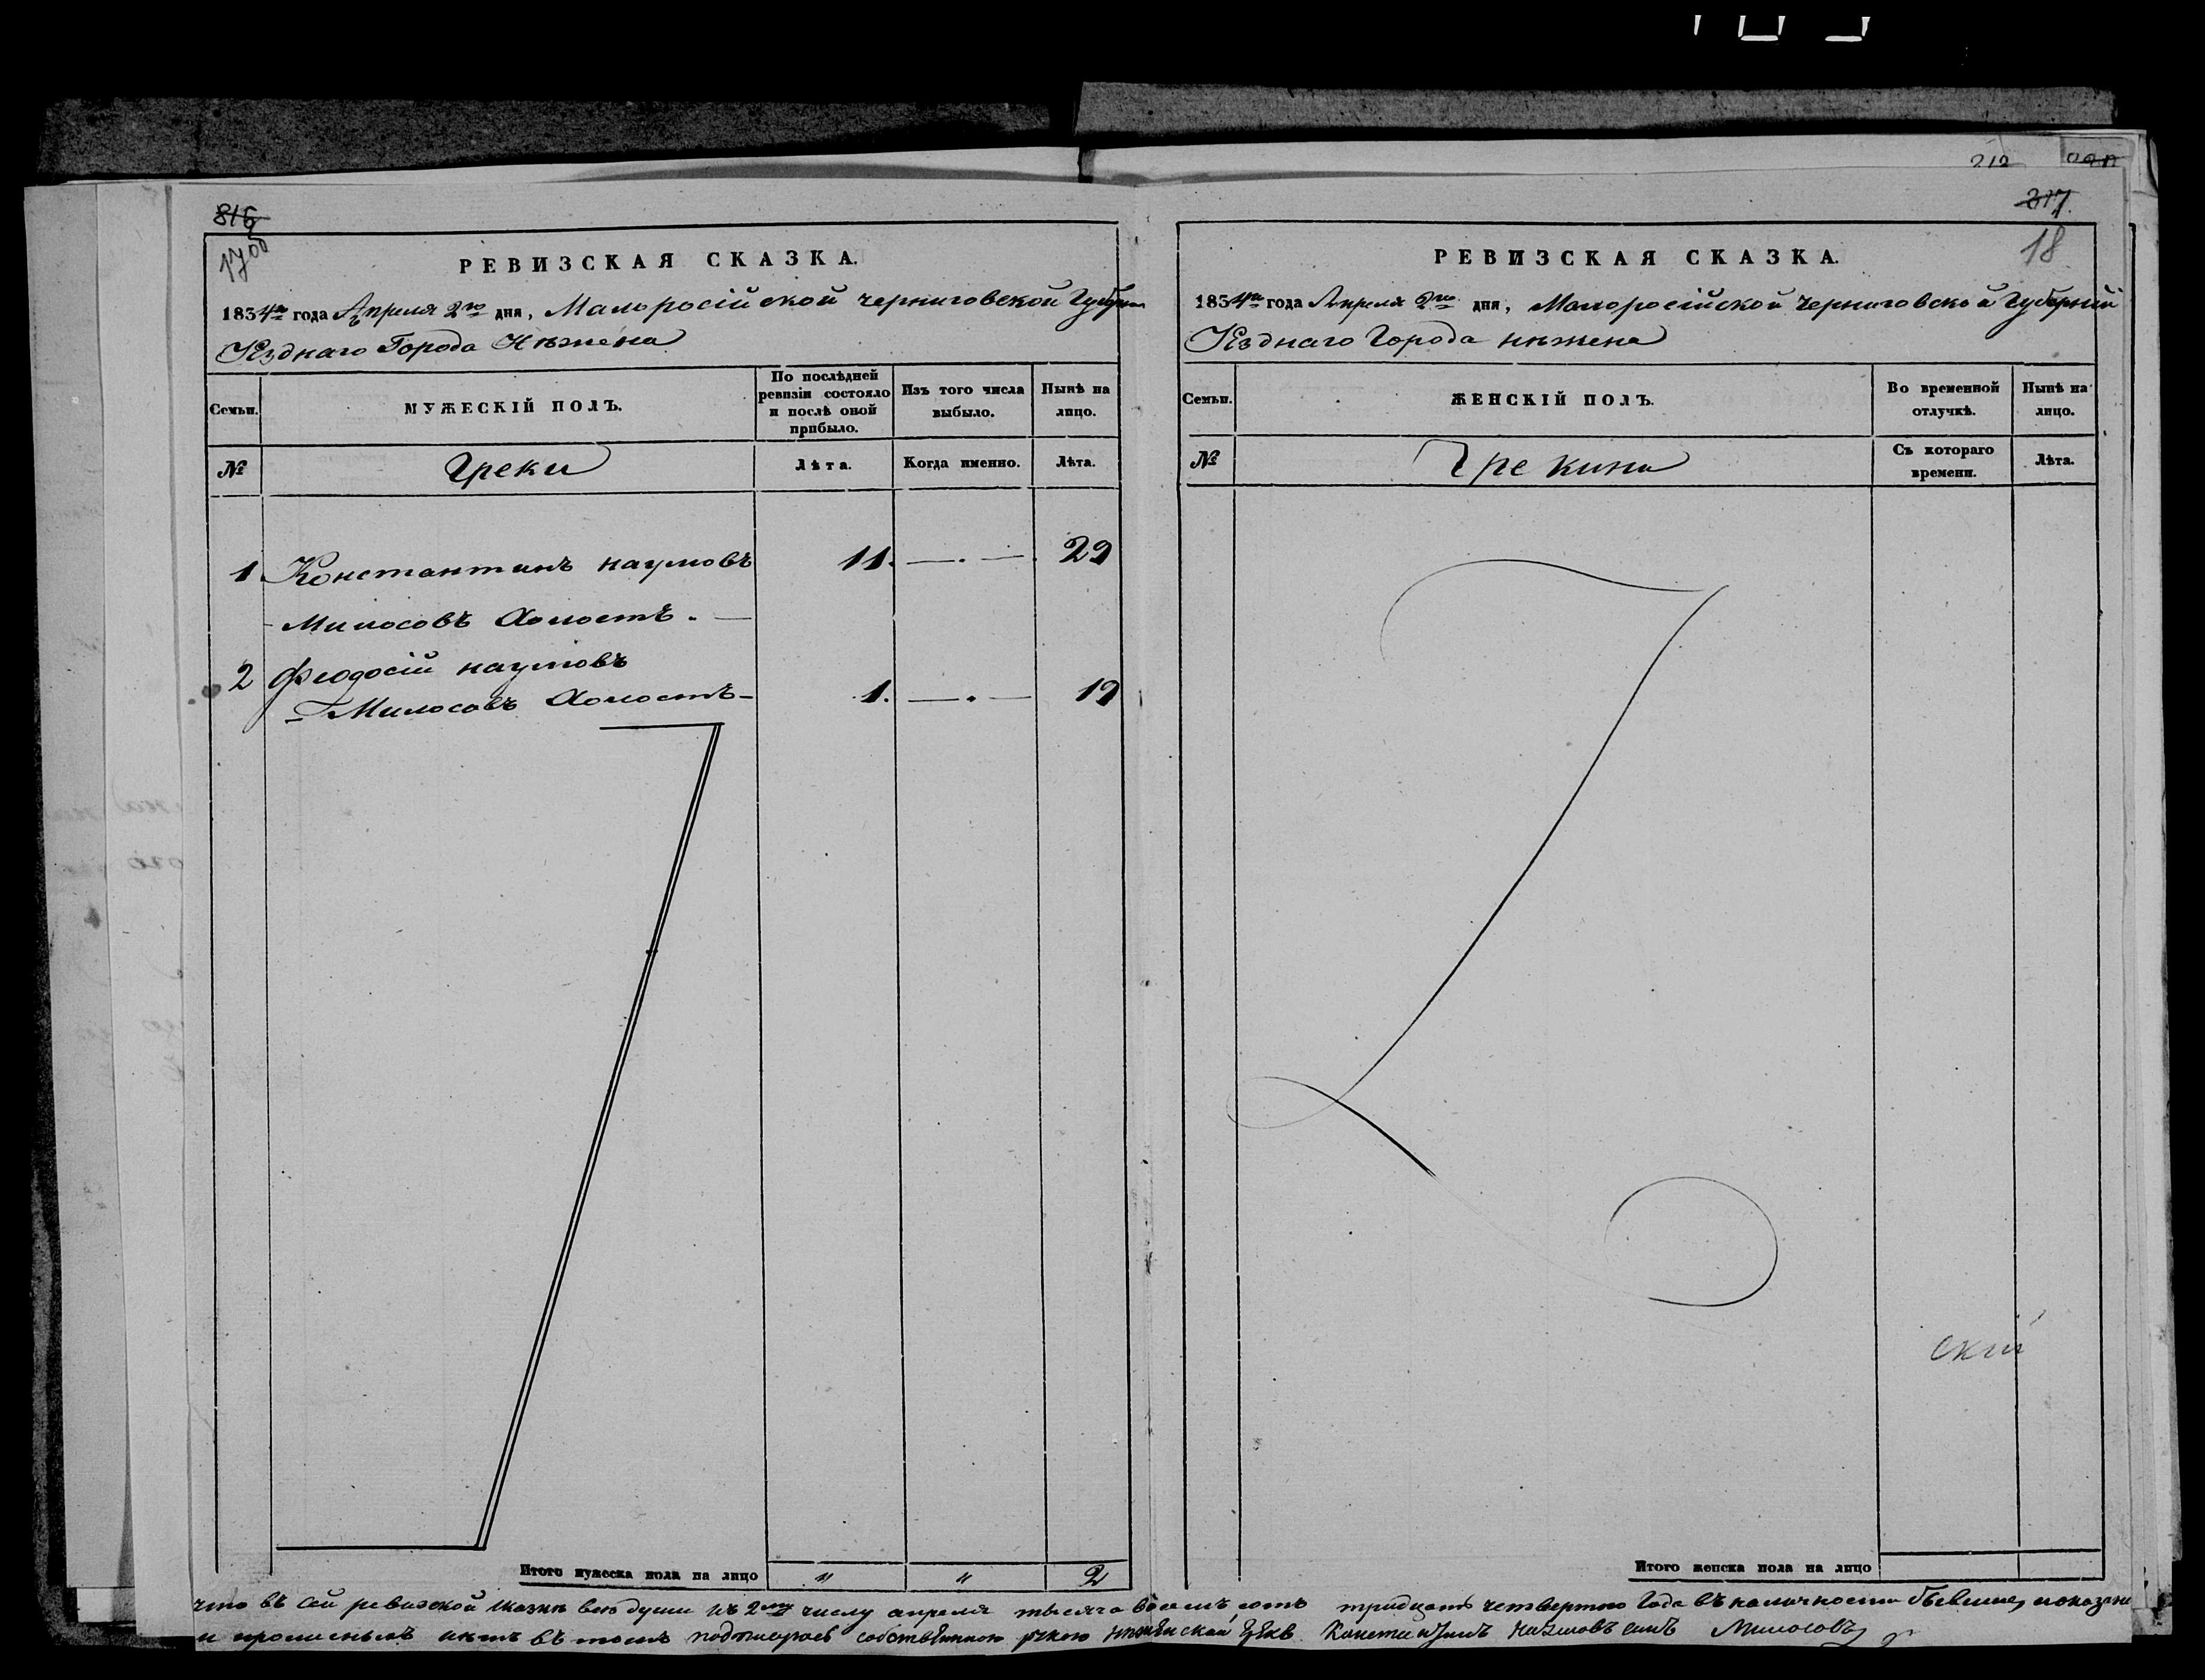 212
816
17об
РЕВИЗСКАЯ СКАЗКА.
1834го года Апреля 2го дня, Малоросiйской Черниговской Губерни
Уезднаго Города Нѣжена
Семьи.
МУЖЕСКIЙ ПОЛЪ.
По послѣдней ревизiи состояло и послѣ оной прибыло.
Изъ того числа выбыло.
Нынѣ на лицо.
№
Греки
Лѣта.
Когда именно.
Лѣта.
1 Константинъ наумовъ 11. — . — 29
Милосовъ Холостъ . —
2 Феодосiй наумовъ
Милосовъ Холостъ — 1. — . — 19
Итого мужеска пола на лицо " " 2
317.
18
РЕВИЗСКАЯ СКАЗКА.
1834го года Апреля 2го дня, Малоросiйской Черниговской Губернiй
Уезднаго Города нѣжена
Семьи.
ЖЕНСКIЙ ПОЛЪ.
Во временной отлучкѣ.
Нынѣ на лицо.
№
Грекини
Съ котораго времени.
Лѣта.
скiй
Итого женска пола на лицо
что въ сей ревизской сказки все души къ 2му числу апреля тысяча восемъ сотъ тридцать четвертго Года въ наличности бывшие показани
и прописныхъ нетъ въ томъ подписуюсь собственною рукою нѣженскай грекъ Константинъ наумовъ синъ Милосовъ